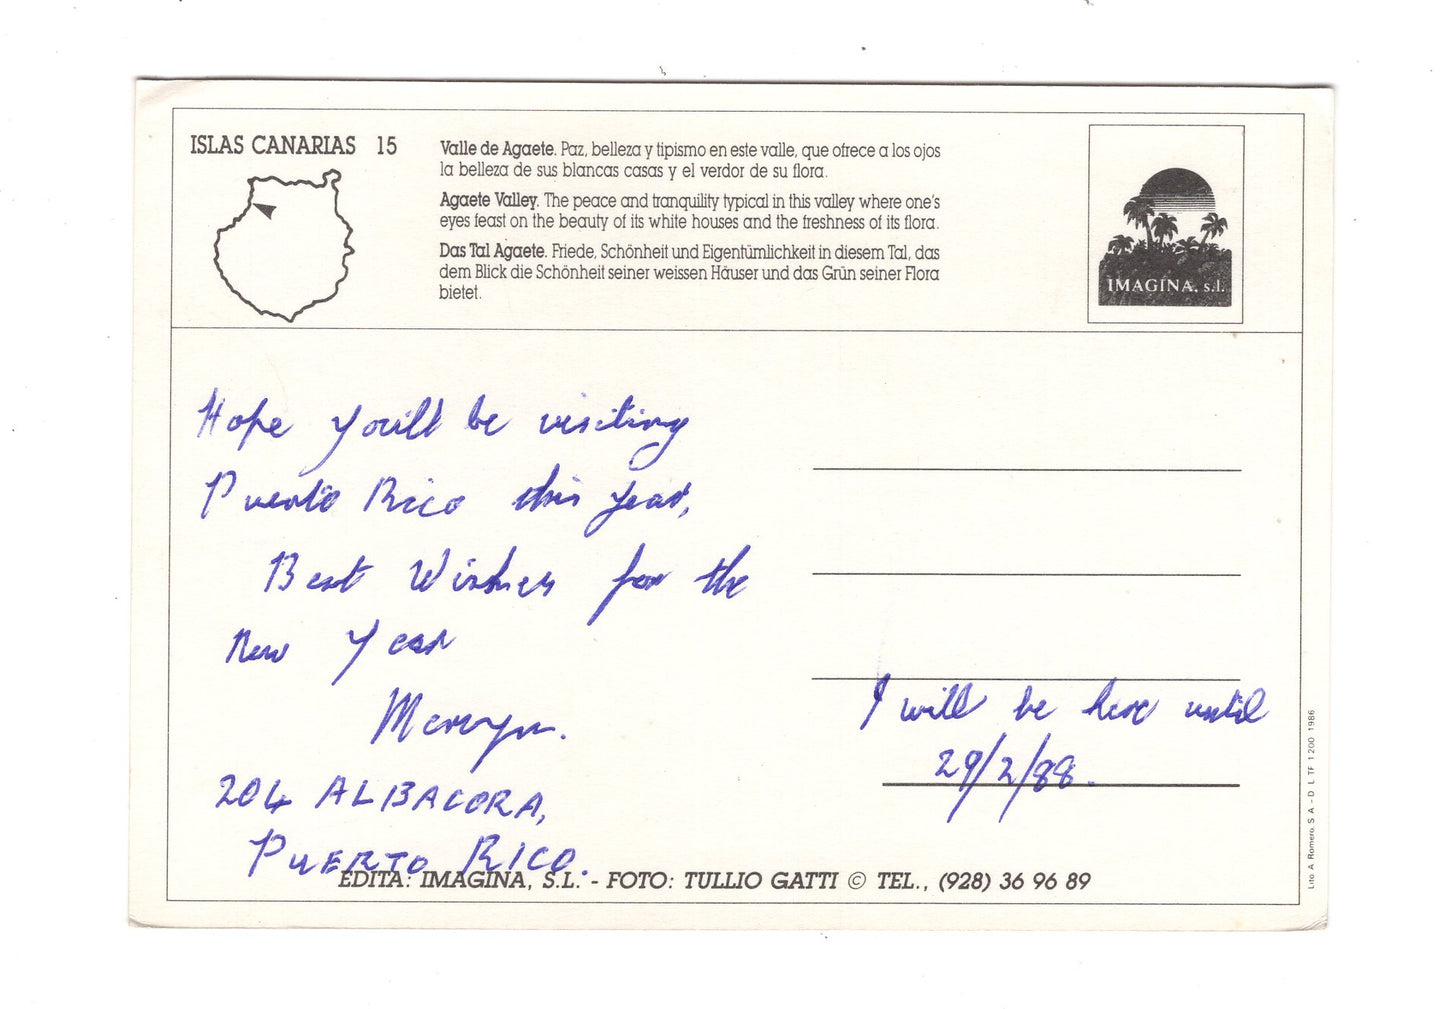 ISLAS CANARIAS 15
Valle de Agaete. Paz, belleza y tipismo en este valle, que ofrece a los ojos
la belleza de sus blancas casas y el verdor de su flora.
Agaete Valley. The peace and tranquility typical in this valley where one's
eyes feast on the beauty of its white houses and the freshness of its flora.
Das Tal Agaete. Friede, Schönheit und Eigentümlichkeit in diesem Tal, das
dem Blick die Schönheit seiner weissen Häuser und das Grün seiner Flora
bietet.
IMAGINA, s.l.
Hope you'll be visiting
Puerto Rico this year,
Best Wishes for the
New Year
Mervyn.
204 ALBACORA,
PUERTO RICO.
I will be here until
29/2/88.
EDITA: IMAGINA, S.L. - FOTO: TULLIO GATTI © TEL., (928) 36 96 89
Lito. A. Romero, S. A. - D. L. TF 1200 1986